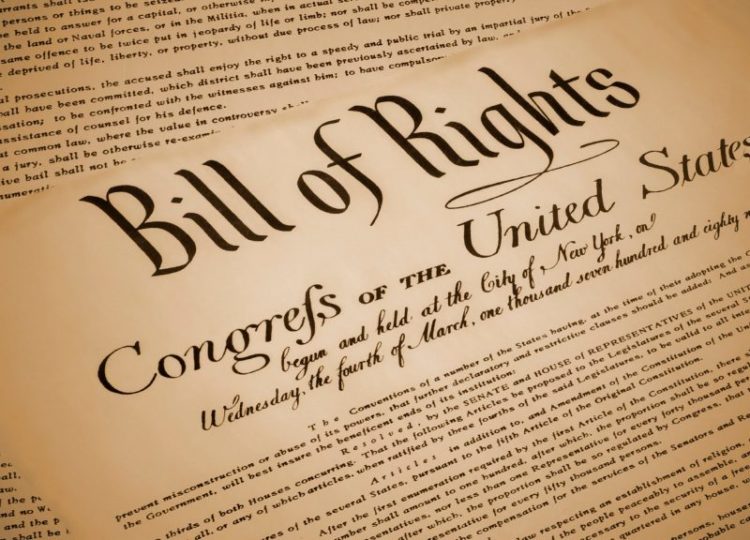 arrants shall iss
persons or things to be seized.
be held to answer for a capital, or otherwise
the land or Naval forces, or in the Militia, when in actual se
same offence to be twice put in jeopardy of life or limb; nor shall be compel
deprived of life, liberty, or property, without due process of law; nor shall private property
al prosecutions, the accused shall enjoy the right to a speedy and public trial by an impartial jury of the
hall have been committed, which district shall have been previously ascertained by law, and
sation; to be confronted with the witnesses against him; to have compulsor
ssistance of counsel for his defence.
at common law, where the value in controversy shall
a jury, shall be otherwise re-exami
ive bail shall not be
enumerati
Bill of Rights
Congreſs OF THE United States
begun and held at the City of New York, on
Wednesday, the fourth of March, one thousand seven hundred and eighty n
The Conventions of a number of the States having, at the time of their adopting the C
prevent misconstruction or abuse of its powers, that further declaratory and restrictive clauses should be added: And as
the Government, will best insure the beneficent ends of its institution:
Resolved, by the SENATE and HOUSE of REPRESENTATIVES of the UNIT
thirds of both Houses concurring, That the following Articles be proposed to the Legislatures of the several S
all, or any of which articles, when ratified by three fourths of the said Legislatures, to be valid to all inte
Articles in addition to, and Amendment of the Constitution of the U
res of the several States, pursuant to the fifth Article of the Original Constitution.
After the first enumeration required by the first Article of the Constitution, there
number shall amount to one hundred, after which, the proportion shall be so regu
entatives, nor less than one Representative for every forty thousand per
after which, the proportion shall be so regulated by Congress, that t
for every fifty thousand persons.
the compensation for the services of the Senators and Re
law respecting an establishment of religion,
of the people peaceably to assemble, a
necessary to the security of a free
quartered in any house,